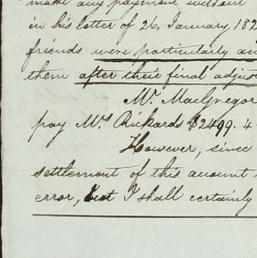 make any payment without
in his letter of 26. January, 182
friends were particularly
them after their final adjus
Mr. MacGregor
pay Mrs Rickards $2499.4
However, since
settlement of this amount
error, but I shall certainly